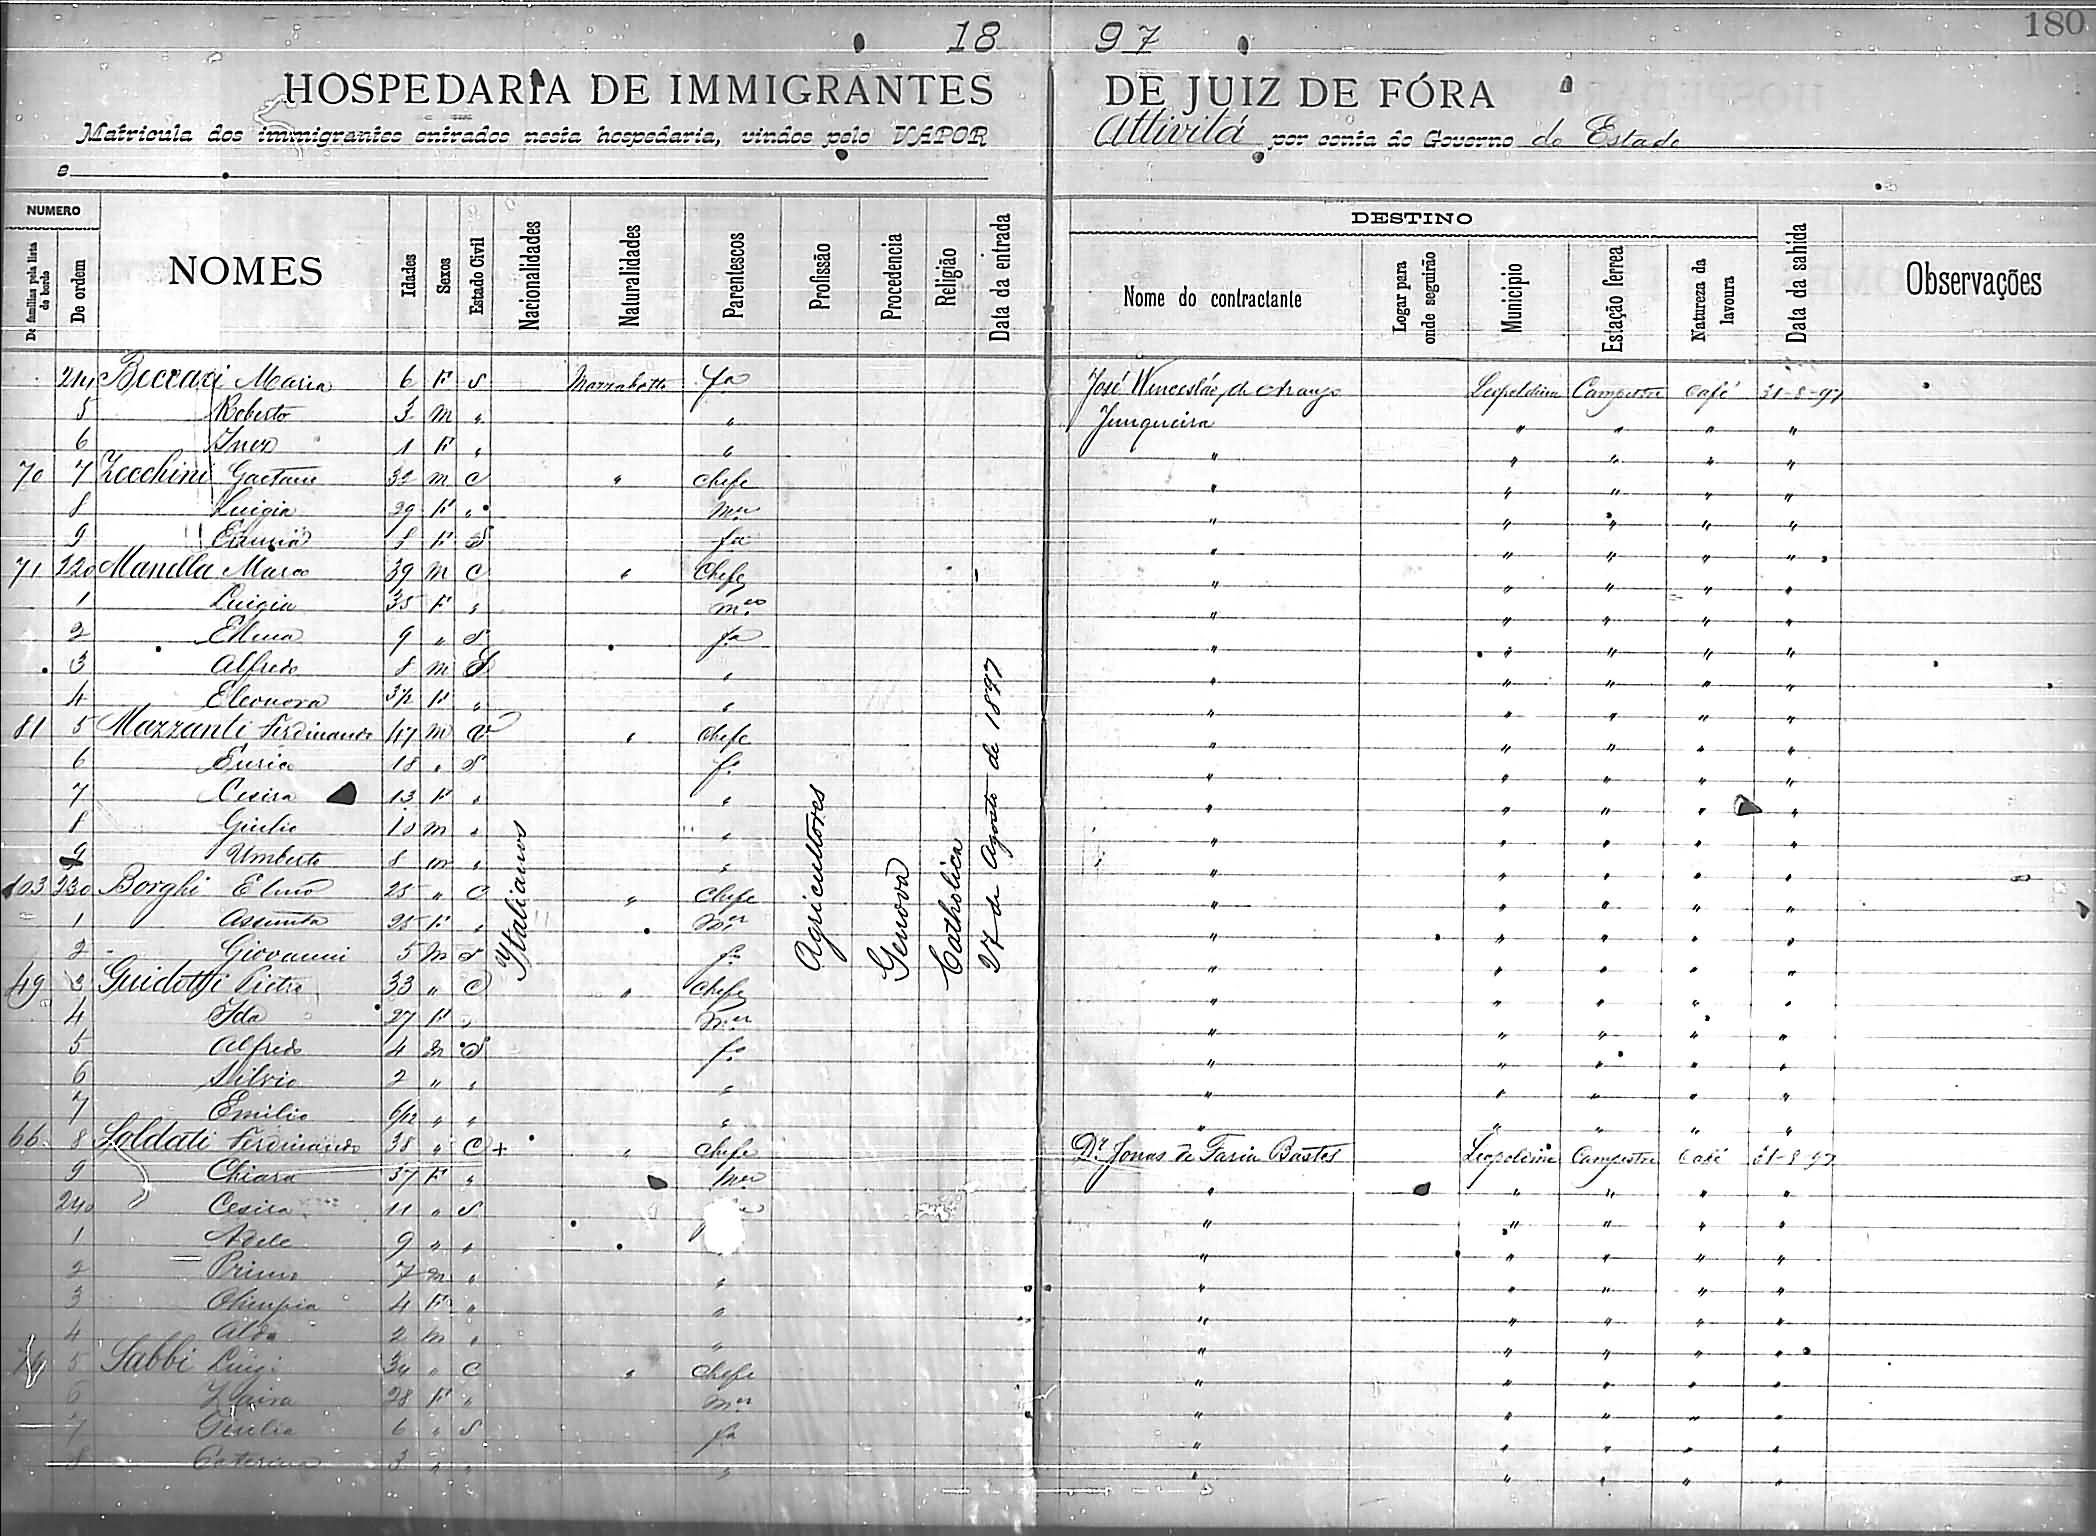 180
18 97
HOSPEDARIA DE IMMIGRANTES DE JUIZ DE FÓRA
Matricula dos immigrantes entrados nesta hospedaria, vindos pelo VAPOR Attivitá por conta do Governo do Estado
e
NUMERO
De familia pela lista de bordo
De ordem
NOMES
Idades
Sexos
Estado Civil
Nacionalidades
Naturalidades
Parentescos
Profissão
Procedencia
Religião
Data da entrada
DESTINO
Nome do contractante
Logar para onde seguirão
Municipio
Estação ferrea
Natureza da lavoura
Data da sahida
Observações
Maria 6 F S Marzabotto fa José Wencesláo de Araujo Leopoldina Campestre Café 31-8-97
5 Roberto 3 m " " Junqueira " " " "
6 1 F " " " " " " "
70 7 Zecchini Gaetano 32 m C " Chefe " " " " "
8 Luigia 29 F " mer " " " " "
9 F S fa " " " " "
71 220 Manella Marco 39 m C " Chefe " " " " "
1 Luigia 35 F " mer " " " " "
2 9 " S fa " " " " "
3 Alfredo 8 m S " " " " " "
4 Eleonora F " " " " " " "
81 5 Mazzanti Ferdinando 47 m V " Chefe " " " " "
6 18 " S fo " " " " "
7 Cesira 13 F " " " " " " "
8 Giulio 10 m " " " " " " "
9 Umberto 8 m " " " " " " "
103 230 Borghi 25 " C " Chefe " " " " "
1 Assunta 25 F " mer " " " " "
2 Giovanni 5 m S fo " " " " "
49 3 Guidotti Pietro 33 " C " Chefe " " " " "
4 Ida 27 F " mer " " " " "
5 Alfredo 4 m S fo " " " " "
6 Silvio 2 " " " " " " " "
7 Emilio 6/12 " " " " " " " "
66 8 Soldati Ferdinando 38 " C + " Chefe Dr. Jonas de Faria Bastos Leopoldina Campestre Café 31-8-97
9 Chiara 37 F " mer " " " " "
240 Cesira 11 " S " " " " "
1 Adele 9 " " " " " " "
2 Primo 7 m " " " " " " "
3 Olimpia 4 F " " " " " " "
4 Aldo 2 m " " " " " " "
5 Sabbi Luigi 34 " C " Chefe " " " " "
6 Zaira 28 F " mer " " " " "
7 Giulia 6 " S fa " " " " "
8 Caterina 3 " " " " " " " "
Italianos
Agricultores
Genova
Catholica
27 de Agosto de 1897